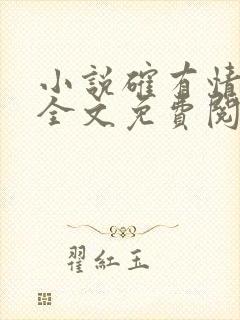 小說確有情
全文免費閱
翟紅玉